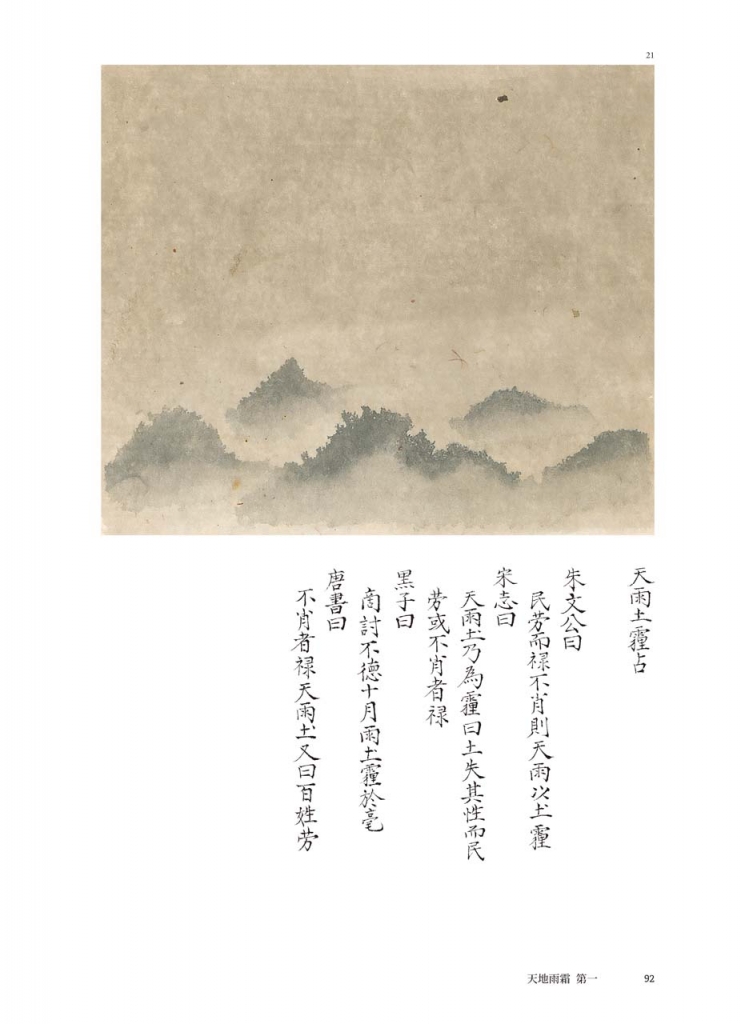 21
天雨土霾占
朱文公曰
民劳而禄不肖則天雨以土霾
宋志曰
天雨圡乃為霾曰土失其性而民
劳或不肖者禄
黒子曰
商討不德十月雨圡霾於亳
唐書曰
不肖者禄天雨圡又曰百姓劳
天地雨霜 第一 92